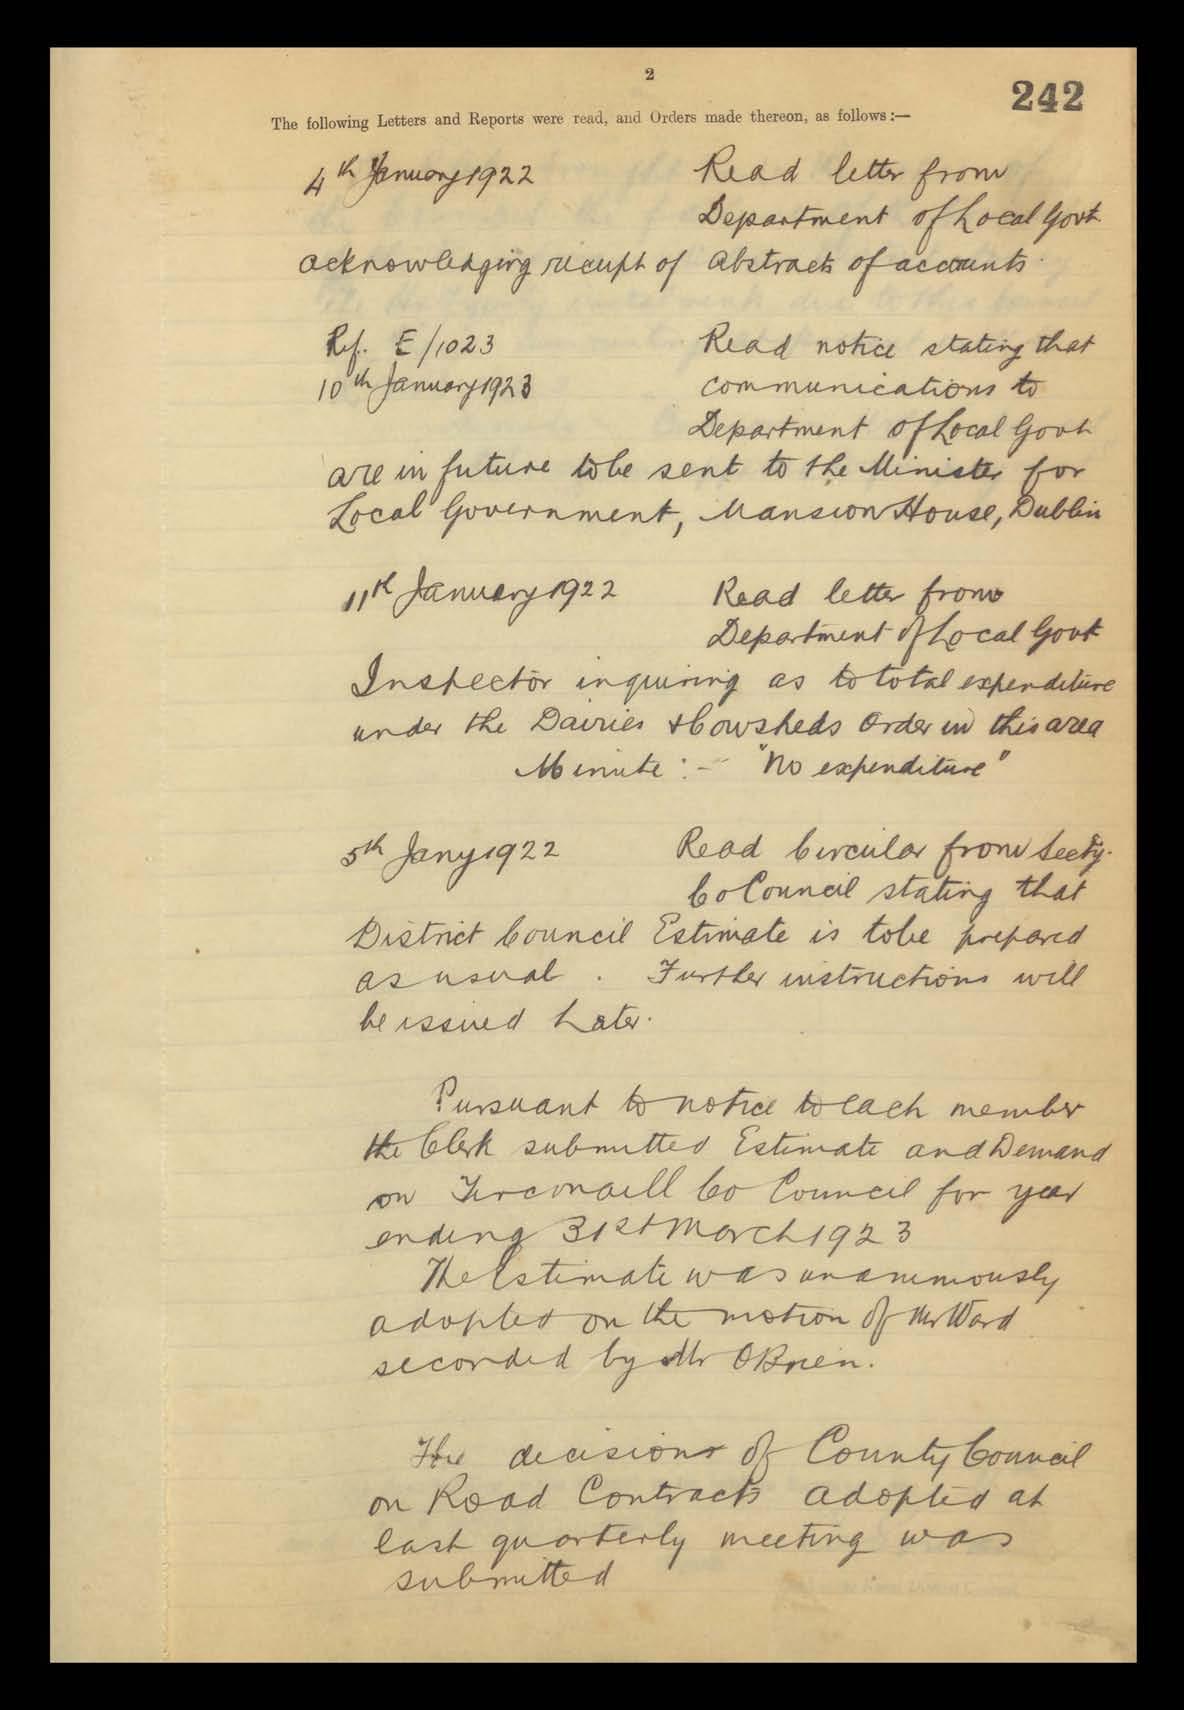 2
242
The following Letters and Reports were read, and Orders made thereon, as follows :—
4th January 1922 Read letter from
Department of Local Govt.
acknowledging receipt of Abstracts of accounts.
Ref. E/1023 Read notice stating that
10th January 1923 communications to
Department of Local Govt
are in future to be sent to the Minister for
Local Government, Mansion House, Dublin
11th January 1922 Read letter from
Department of Local Govt
Inspector inquiring as to total expenditure
under the Dairies & Cowsheds Order in this area
Minute :- "No expenditure"
5th Jany 1922 Read Circular from Secty.
Co Council stating that
District Council Estimate is to be prepared
as usual. Further instructions will
be issued Later.
Pursuant to notice to each member
the Clerk submitted Estimate and Demand
on Tirconaill Co Council for year
ending 31st March 1923
The Estimate was unanimously
adopted on the motion of Mr Ward
seconded by Mr OBrien.
The decisions of County Council
on Road Contracts adopted at
last quarterly meeting was
submitted